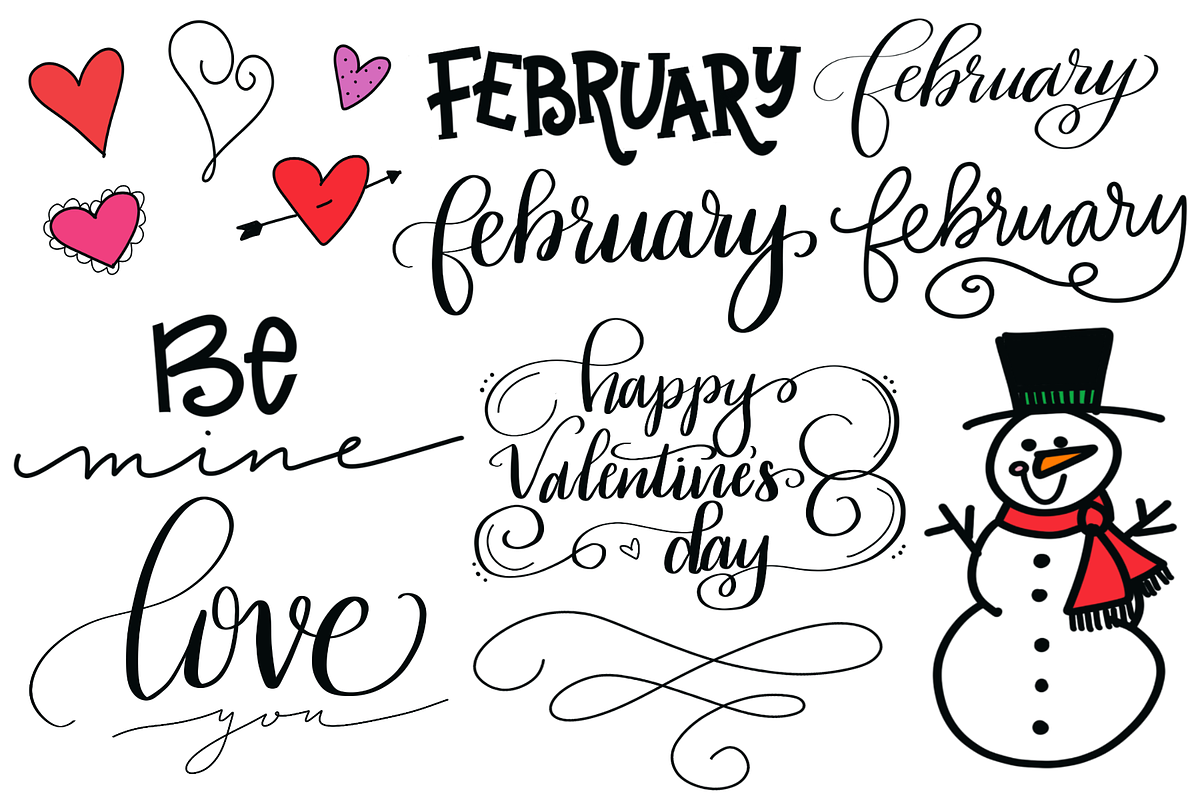 FEBRUARY
february
february
february
Be
mine
happy
Valentine's
day
love
you